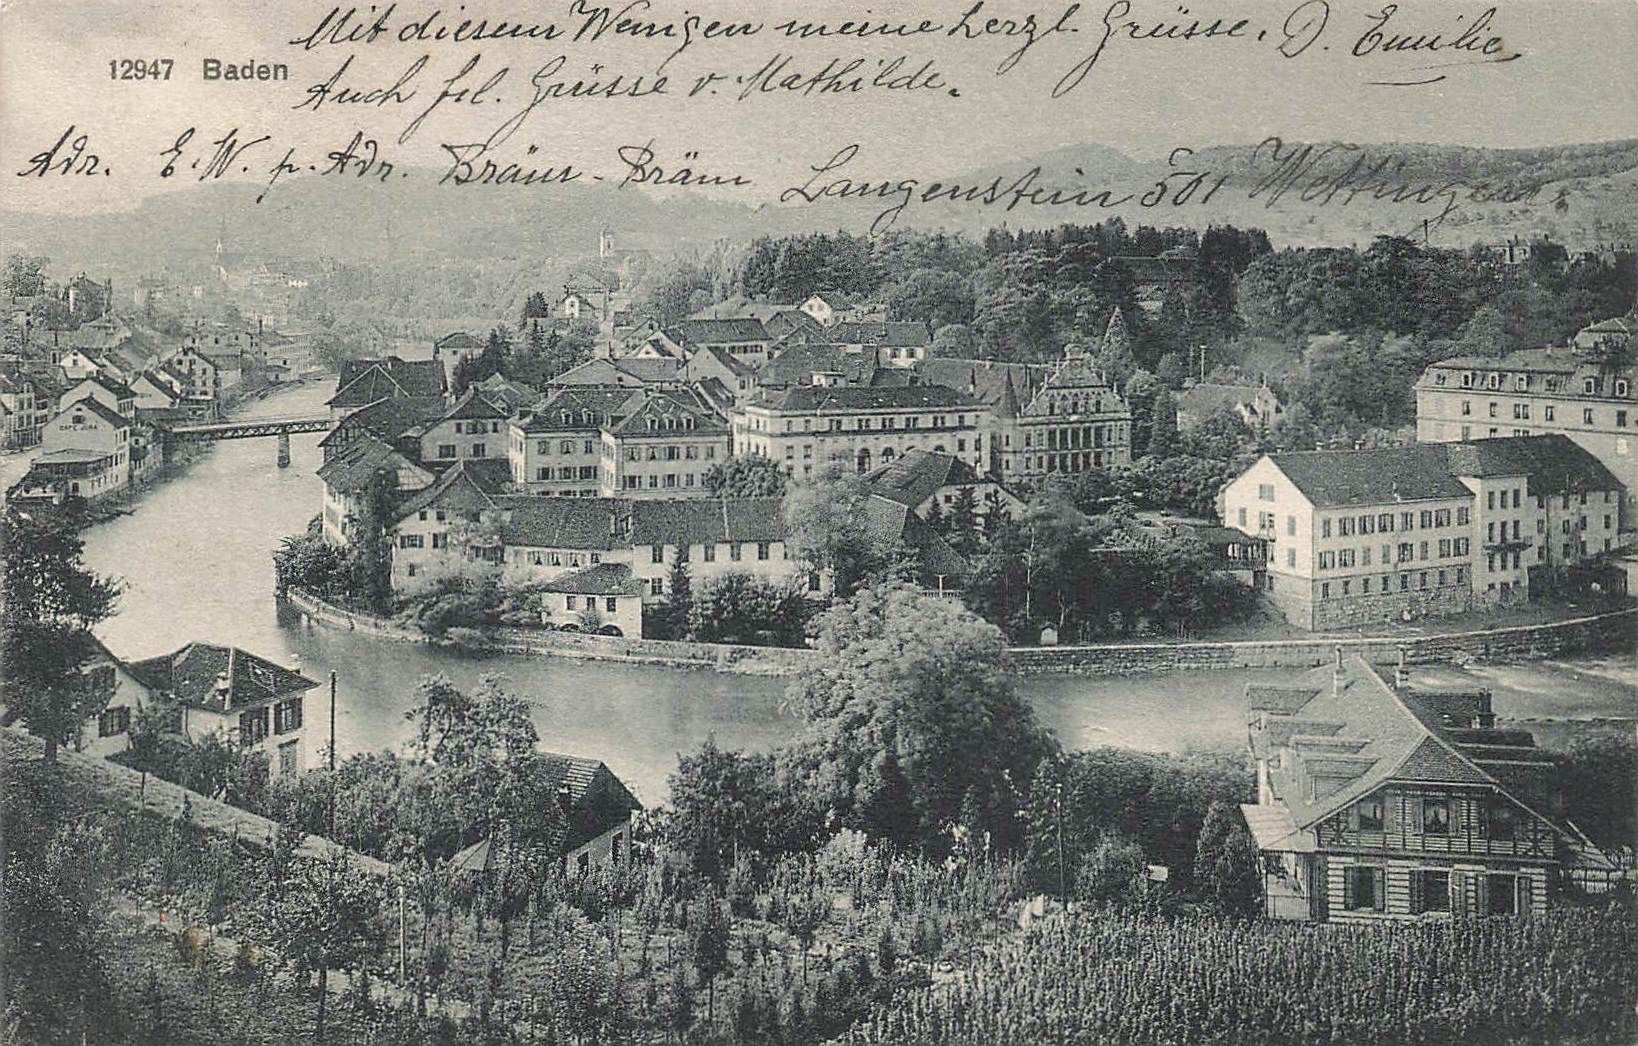 Mit diesem Wenigen meine herzl. Grüsse. D. Emilie
12947 Baden
Auch frl. Grüsse v. Mathilde.
Adr. E. W. p. Adr. Bräm Langenstein 501 Wettingen.
CAFÉ JURA